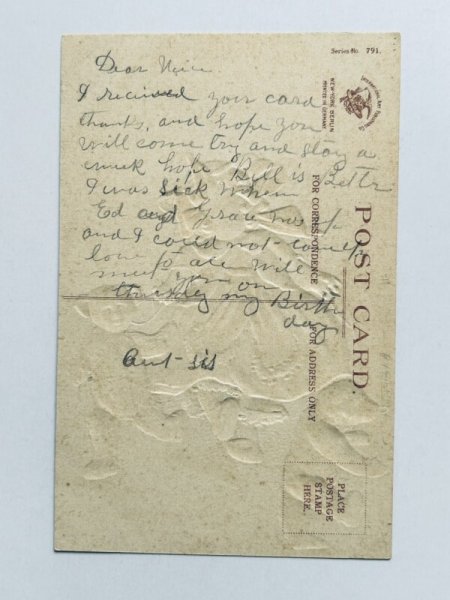 Series No. 791.
Dear Niece
I recieved your card
thanks, and hope you
will come try and stay a
week hope Bill is Better
I was sick when
Ed and Grace was up
and I could not come
love to all will
you on
thursday my Birth
day
Aunt - sis
INTERNATIONAL ART PUBLISHING Co.
NEW-YORK BERLIN
PRINTED IN GERMANY
POST CARD.
FOR CORRESPONDENCE
FOR ADDRESS ONLY
PLACE
POSTAGE
STAMP
HERE.